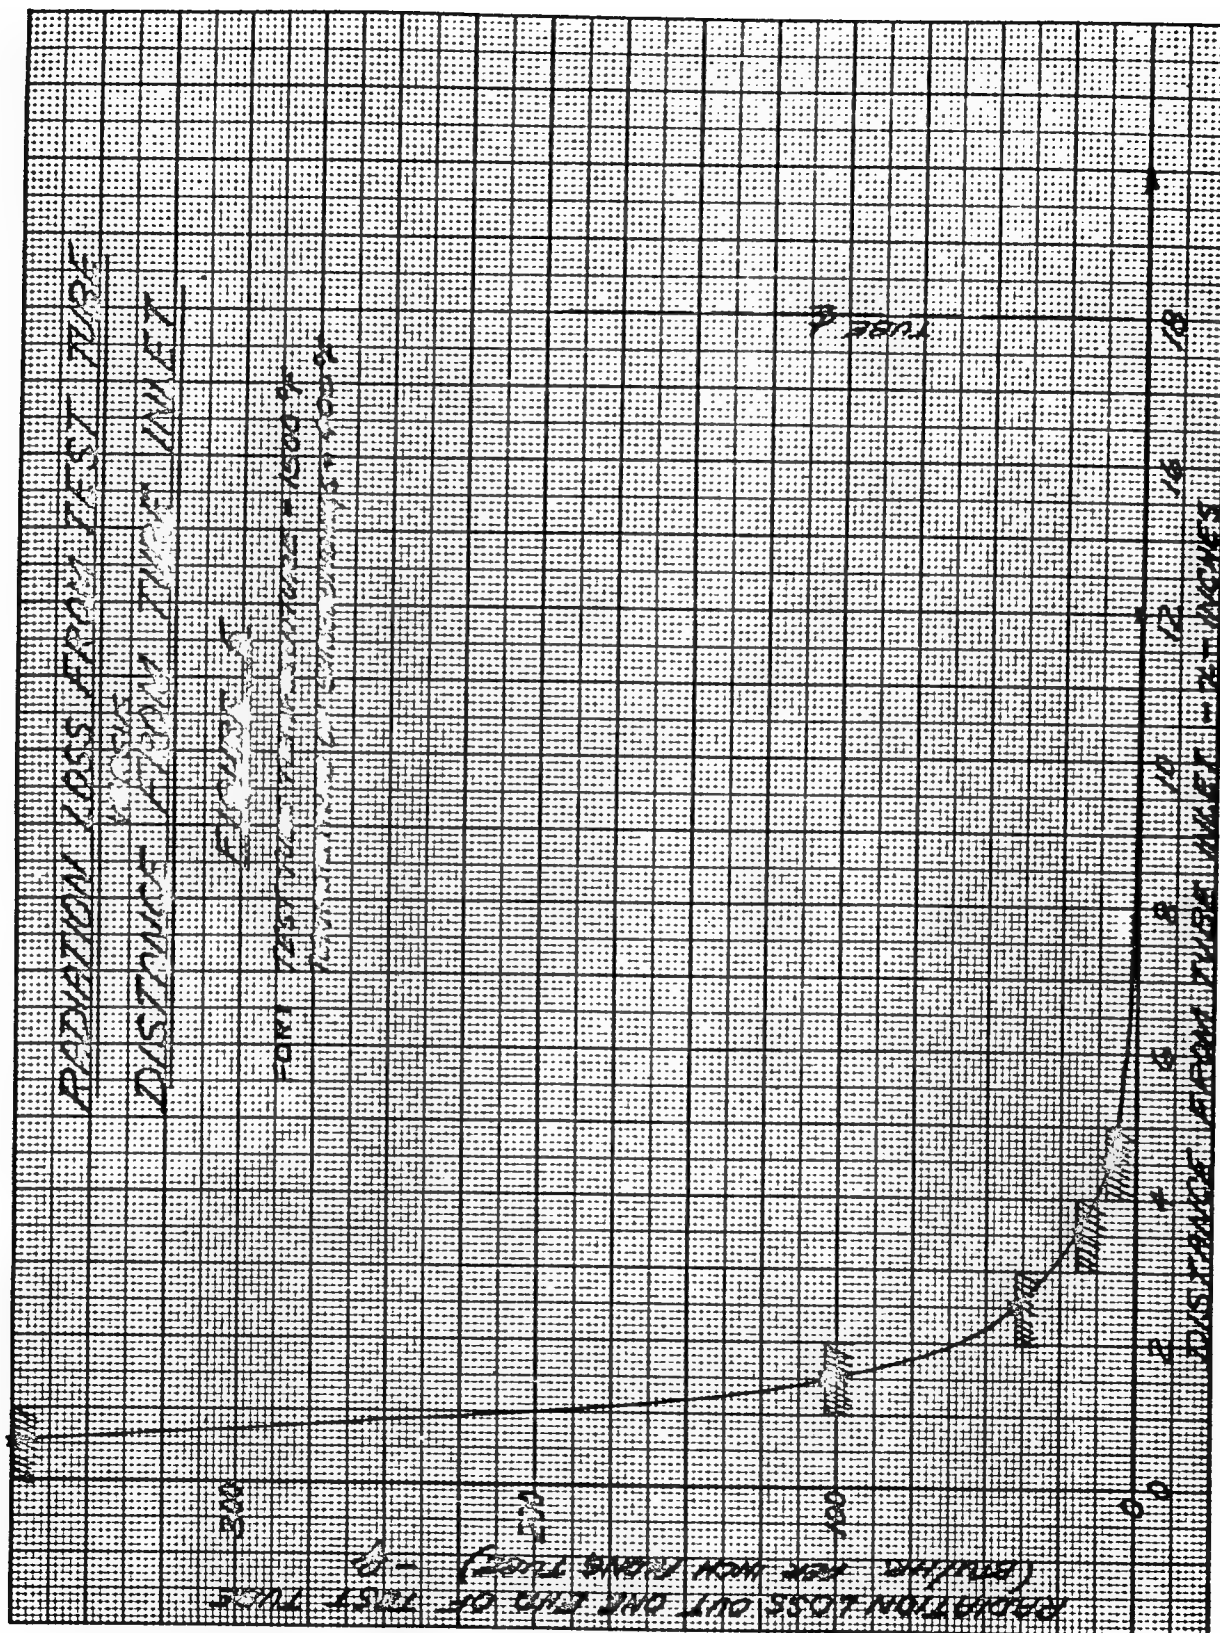 RADIATION LOSS FROM TEST TUBE
VERSUS
DISTANCE FROM TUBE INLET
FIGURE 5
FOR: TEST TUBE TEMPERATURE = 1500 °F
TUBE ℄
RADIATION LOSS OUT ONE END OF TEST TUBE
(BTU/HR PER INCH ALONG TUBE)
300
200
100
0
0 2 4 6 8 10 12 16 18
DISTANCE FROM TUBE INLET - X - INCHES